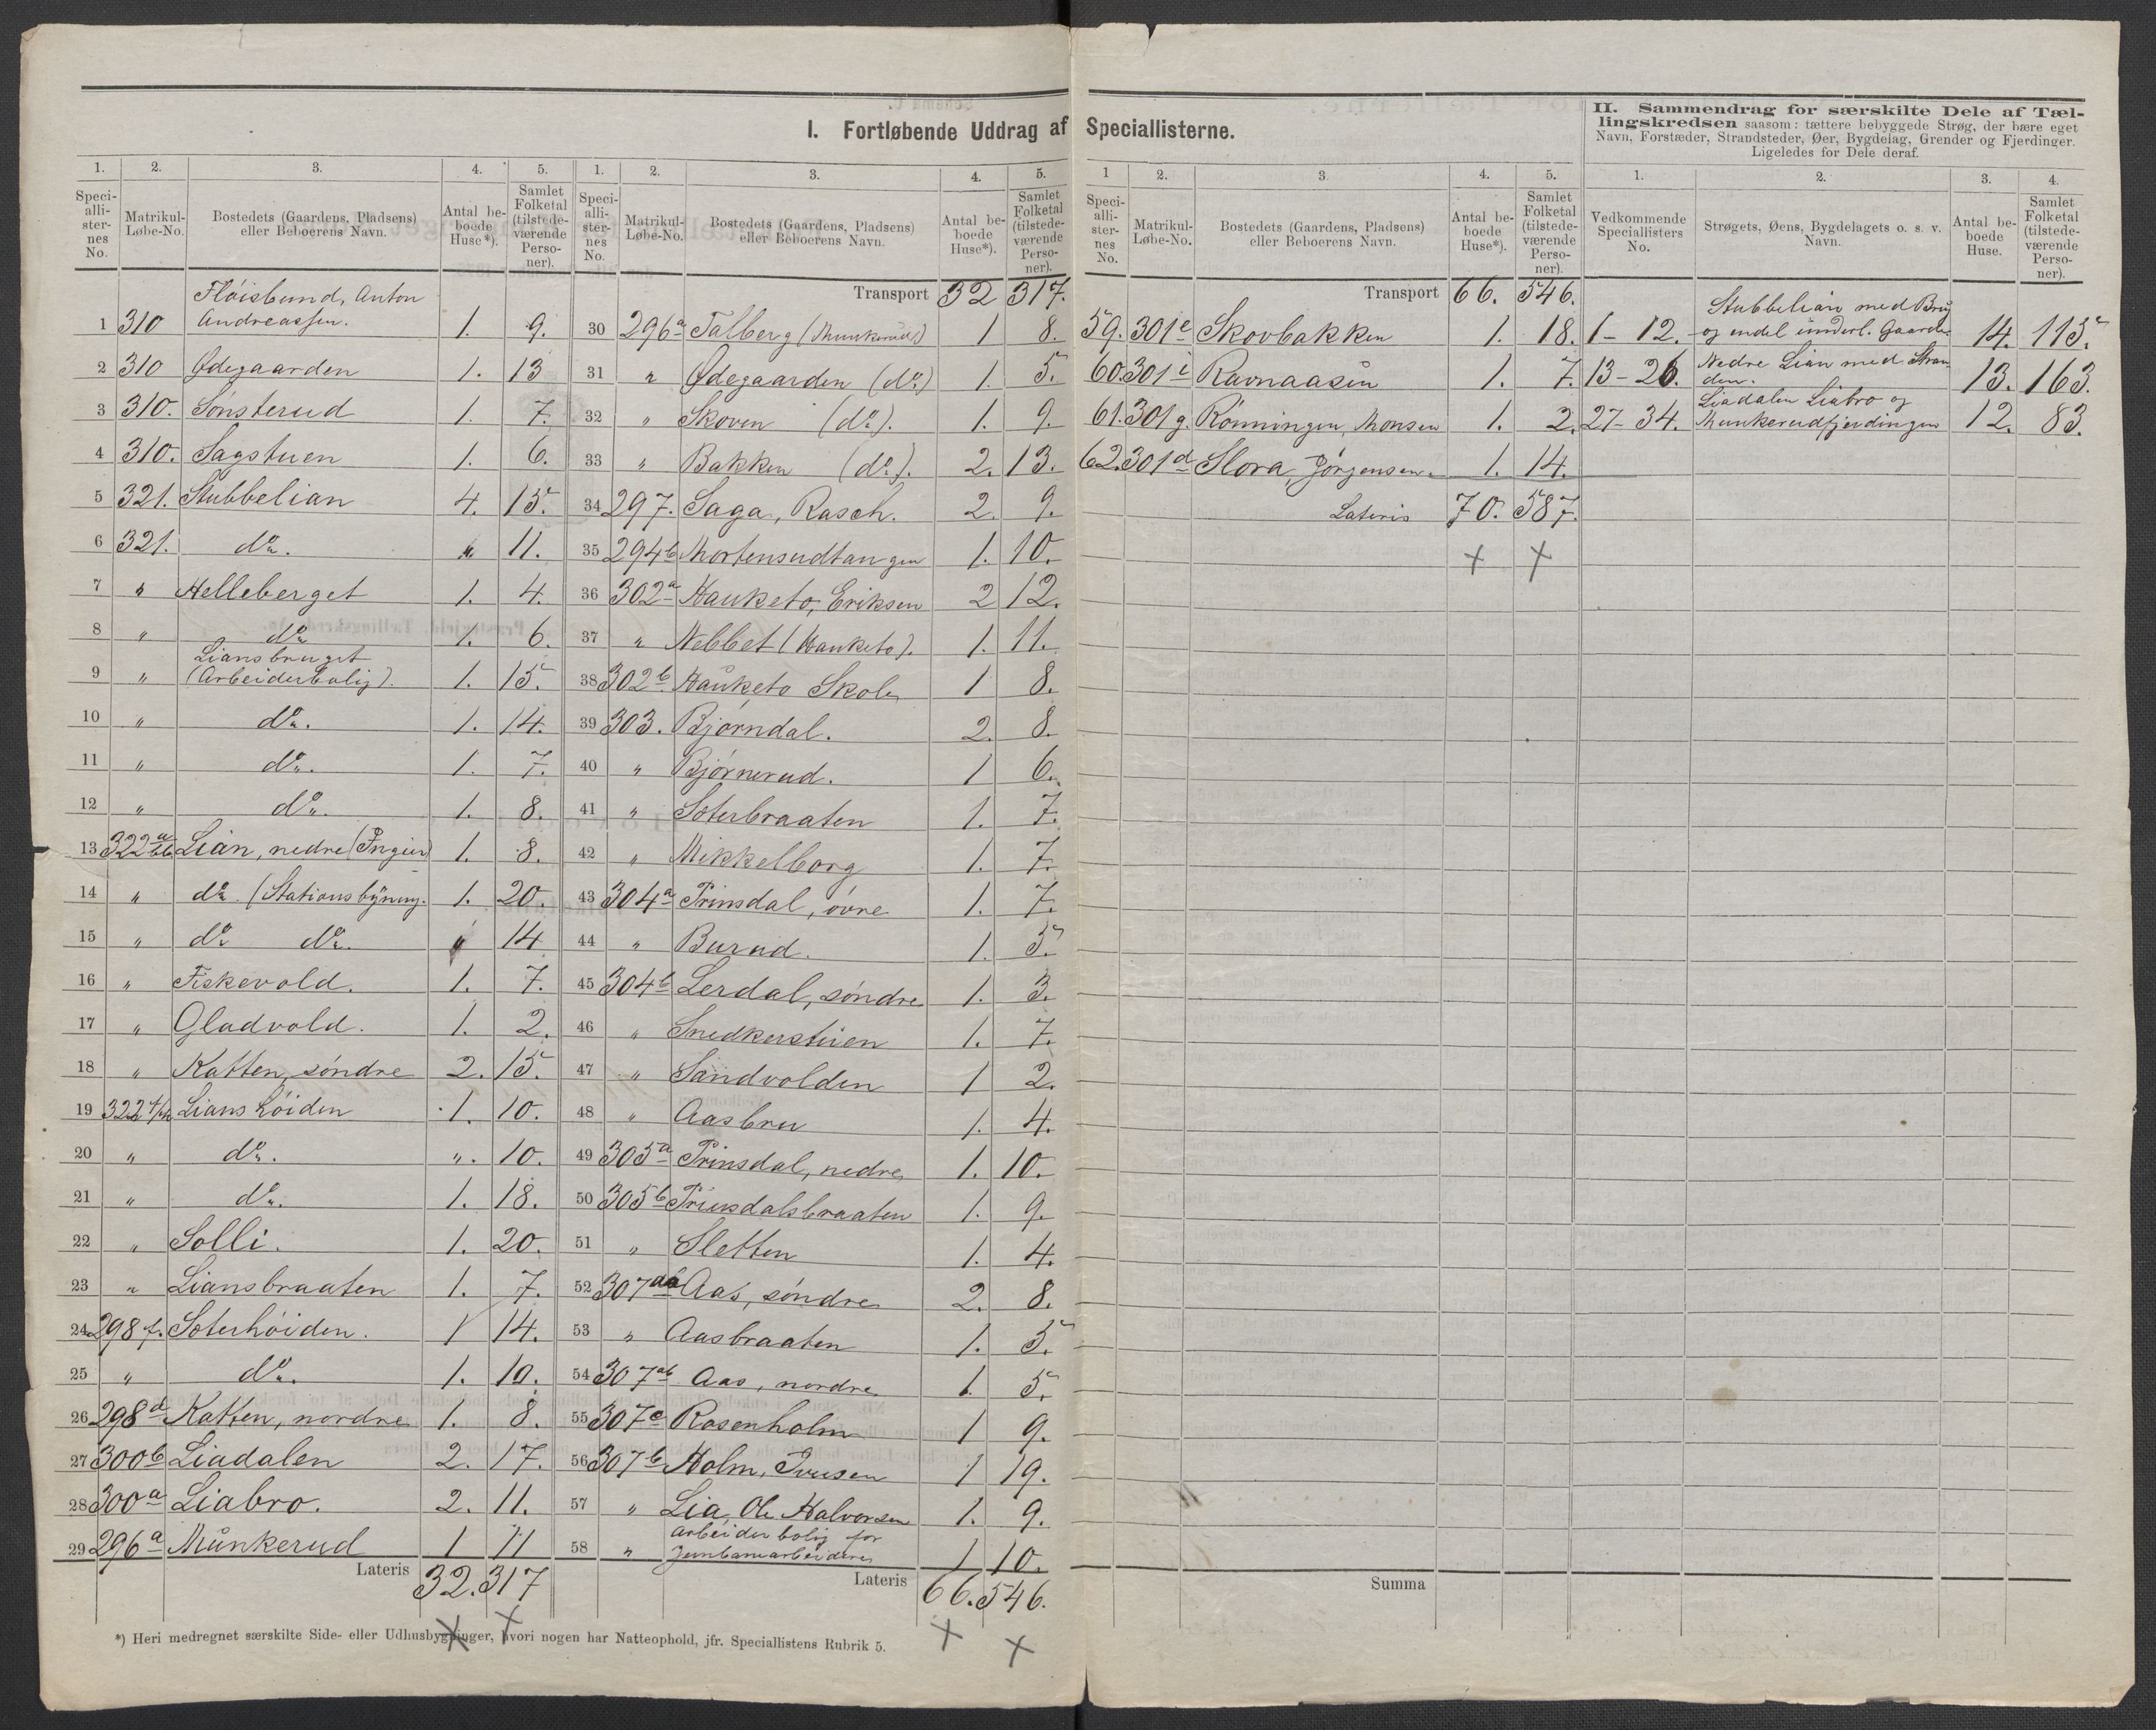 I. Fortløbende Uddrag af Speciallisterne.
1. 2. 3. 4. 5.
Speci-alli-ster-nes No. Matrikul-Løbe-No. Bostedets (Gaardens, Pladsens) eller Beboerens Navn. Antal be-boede Huse*). Samlet Folketal (tilstede-værende Perso-ner).
Fløisbund, Anton
1 310 Andreassen. 1. 9.
2 310 Ødegaarden 1. 13
3 310. Sønsterud 1. 7.
4 310. Sagstuen 1. 6.
5 321. Stubbelian 4. 15.
6 321. do. " 11.
7 " Helleberget 1. 4.
8 " do 1. 6.
Liansbruget
9 " (Arbeiderbolig). 1. 15.
10 " do. 1. 14.
11 " do. 1. 7.
12 " do. 1. 8.
13 322a Lian, nedre (Ingier) 1. 8.
14 " do. (Stationsbyning. 1. 20.
15 " do do. " 14
16 " Fiskevold. 1. 7.
17 " Gladvold. 1. 2.
18 " Katten, søndre 2. 15.
19 322 Lianshøiden 1. 10.
20 " do. ". 10.
21 " do. 1. 18.
22 " Solli. 1. 20.
23 " Liansbraaten 1. 7.
24 298f. Soterhøiden. 1 14.
25 " do. 1. 10.
26 298d Katten, nordre 1. 8.
27 300b Liadalen 2. 17.
28 300a Liabro. 2. 11.
29 296a Munkerud 1 11
Lateris 32. 317
*) Heri medregnet særskilte Side- eller Udhusbygninger, hvori nogen har Natteophold, jfr. Speciallistens Rubrik 5.
1. 2. 3. 4. 5.
Speci-alli-ster-nes No. Matrikul-Løbe-No. Bostedets (Gaardens, Pladsens) eller Beboerens Navn. Antal be-boede Huse*). Samlet Folketal (tilstede-værende Perso-ner).
Transport 32 317.
30 296a Talberg (Munkerud) 1 8.
31 " Ødegaarden (do.) 1. 5.
32 " Skoven (do.). 1. 9.
33 " Bakken (do.). 2. 13.
34 297. Saga, Rasch. 2. 9.
35 294b Mortensudtangen 1. 10.
36 302a Hauketo, Eriksen 2 12.
37 " Nebbet (Hauketo). 1. 11.
38 302b. Hauketo Skole 1 8.
39 303. Bjørndal. 2. 8.
40 " Bjørnerud. 1 6.
41 " Soterbraaten 1. 7.
42 " Mikkelborg 1. 7.
43 304a Prinsdal, øvre 1. 7.
44 " Burud. 1. 5.
45 304b Lerdal, søndre 1. 3.
46 " Snedkerstuen 1. 7.
47 " Sandvolden 1 2.
48 " Aasbru 1. 4.
49 305a Prinsdal, nedre 1. 10.
50 305b Prinsdalsbraaten 1. 9.
51 " Sletten 1. 4.
52 307aa Aas, søndre 2. 8.
53 " Aasbraaten 1. 5.
54 307ab Aas, nordre 1. 5.
55 307c Rosenholm 1 9.
56 307b Holm, Iversen 1 19.
57 " Lia, Ole Halvorsen 1. 9.
Arbeiderbolig for
58 " Jernbanearbeidere 1 10.
Lateris 66. 546.
1 2. 3. 4. 5.
Speci-alli-ster-nes No. Matrikul-Løbe-No. Bostedets (Gaardens, Pladsens) eller Beboerens Navn. Antal be-boede Huse*). Samlet Folketal (tilstede-værende Perso-ner).
Transport 66. 546.
59. 301e Skovbakken 1. 18.
60. 301i Ravnaasen 1. 7.
61. 301g. Rønningen, Monsen 1. 2.
62. 301d Slora, Jørgensen. 1. 14.
Lateris 70. 587.
Summa
II. Sammendrag for særskilte Dele af Tæl-
lingskredsen saasom: tættere bebyggede Strøg, der bære eget
Navn, Forstæder, Strandsteder, Øer, Bygdelag, Grender og Fjerdinger.
Ligeledes for Dele deraf.
1. 2. 3. 4.
Vedkommende Speciallisters No. Strøgets, Øens, Bygdelagets o. s. v. Navn. Antal be-boede Huse. Samlet Folketal (tilstede-værende Perso-ner).
Stubbelian med Brug
1-12. og endel underl. Gaarde. 14. 115.
Nedre Lian med Stran-
13-26. den. 13. 163.
Liadalen Liabro og
27-34. Munkerudfjerdingen 12. 83.